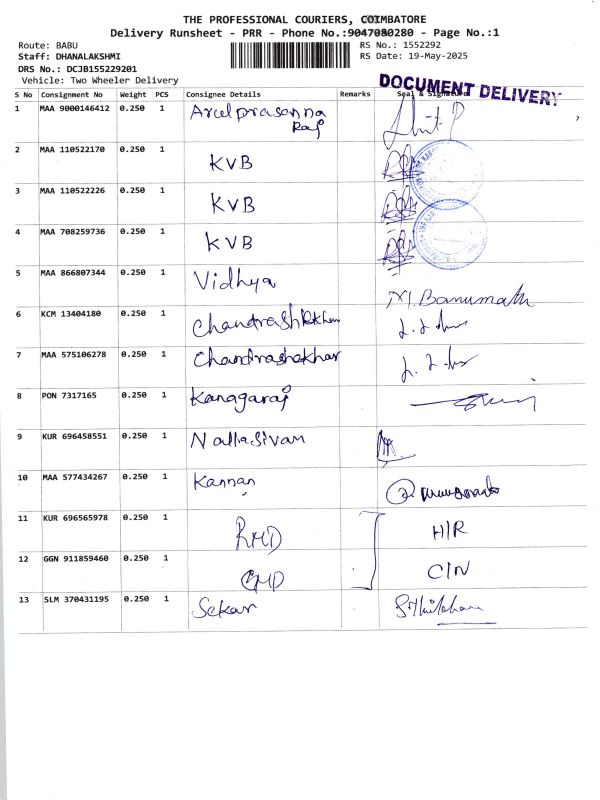 THE PROFESSIONAL COURIERS, COIMBATORE
Delivery Runsheet - PRR - Phone No.:9047080280 - Page No.:1
Route: BABU
RS No.: 1552292
Staff: DHANALAKSHMI
RS Date: 19-May-2025
DRS No.: DCJB155229201
Vehicle: Two Wheeler Delivery
DOCUMENT DELIVERY
S No Consignment No Weight PCS Consignee Details Remarks Seal & Signature
1 MAA 9000146412 0.250 1 Arulprasanna
Raj
2 MAA 110522170 0.250 1 KVB
3 MAA 110522226 0.250 1 KVB
4 MAA 708259736 0.250 1 KVB
5 MAA 866807344 0.250 1 Vidhya M. Banumathi
6 KCM 13404180 0.250 1
7 MAA 575106278 0.250 1 Chandrashekhar
8 PON 7317165 0.250 1 Kanagaraj
9 KUR 696458551 0.250 1 Nallasivam
10 MAA 577434267 0.250 1 Kannan
11 KUR 696565978 0.250 1 H/R
12 GGN 911859460 0.250 1 C/N
13 SLM 370431195 0.250 1 Sekar